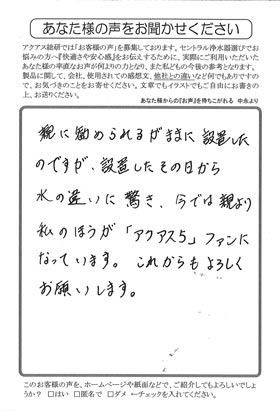 あなた様の声をお聞かせください
アクアス総研では「お客様の声」を募集しております。セントラル浄水器選びでお
悩みの方へ『快適さや安心感』をお伝えするために、実際にご利用いただいた
あなた様の率直なお声が何よりの力となり、また私どもの今後の参考となります。
製品に関して、会社、使用されての感想文、他社との違いなど何でもありですの
で、お気づきのことをお寄せください。文章でもイラストでもご自由にお書きの
上、お送りください。
あなた様からの『お声』を待ちこがれる 中永より
親に勧められるがままに設置した
のですが、設置したその日から
水の違いに驚き、今では親より
私のほうが「アクアス5」ファンに
なっています。これからもよろしく
お願いします。
このお客様の声を、ホームページや紙面などで、ご紹介してもよろしいでしょ
うか？ □はい □匿名で □ダメ ←チェックを入れてください。